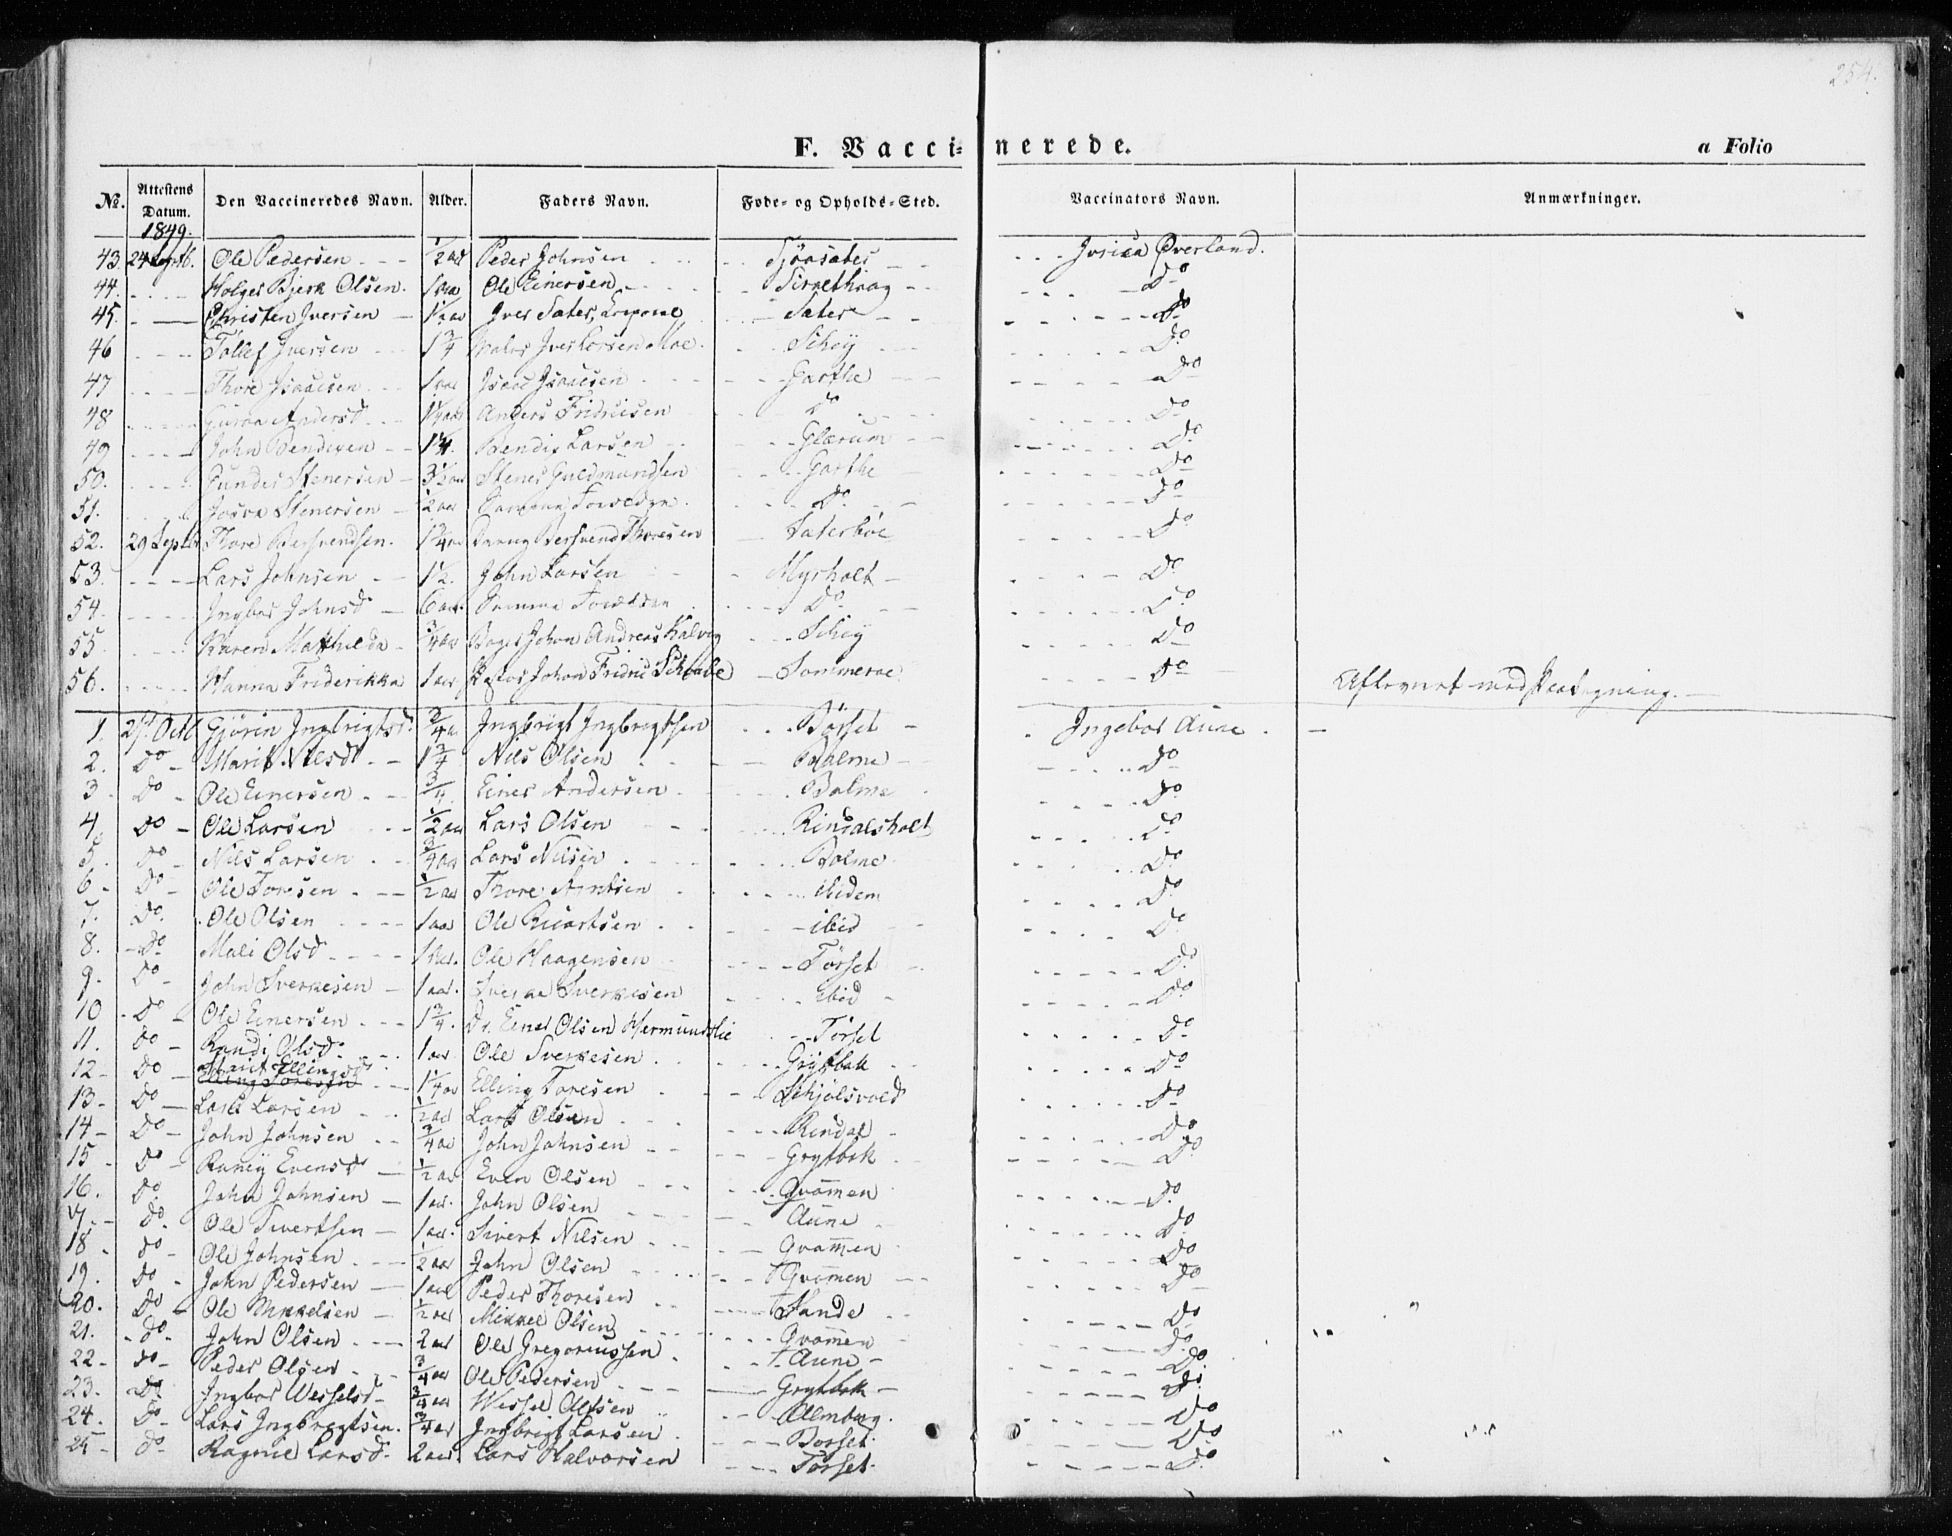 254.
F. Vaccinerede.
a Folio
No. Attestens Datum. Den Vaccineredes Navn. Alder. Faders Navn. Føde- og Opholds-Sted. Vaccinators Navn. Anmærkninger.
1849.
43. 24 Septb. Ole Pedersen 1/2 aar Peder Johnsen Øverland.
44. Holger Bjerk Olsen. 1 aar Ole Einersen Do
45. Christen Iversen Iver Sater Sater Do
46 Tollef Iversen 1 3/4 Moe. Schey Do
47 Thore Isaacsen 1 aar Isaac Isaacsen Garthe Do
48 Guroe Andersd Anders Do Do
49 John Bendixen 1 1/4. Bendix Larsen Glærum Do
50. Stenersen 3 1/2 aar Stener Guldmundsen Garthe Do
51. Stenersen 2 aar Do Do
52. 29 Septbr Thore Bersvendsen. Bersvend Thoresen Saterbøe Do
53. Lars Johnsen 1 1/2. John Larsen Myrholt Do
54. Ingbor Johnsd 6 aar. Do Do
55. Karen Matthilda 3/4 aar Johan Andreas Kalvig Schey Do
56. Hanna Friderikka 1 aar Johan Fridric Schwabe Sommeroe Do Afleveret med Paategning.
1. 27 Octb Gjørin Ingbrigtsd. 3/4 a. Ingbrigt Ingbrigtsen Børset Ingebor Aune
2. Do Marit Nilsd. 1 3/4 Nils Olsen Balme Do
3 Do Ole Einersen 3/4. Einer Andersen Balme Do
4. Do Ole Larsen 1/2 aar Lars Olsen Rindalsholt Do
5. Do Nils Larsen 3/4 aar Lars Nilsen Balme Do
6 Do Ole Toresen 1/2 aar Thore Arntsen ibidem Do
7. Do. Ole Olsen 1 aar Ole ibid Do
8. Do Mali Olsd 1 aar. Ole Haagensen Tørset Do
9. Do John Sverkesen 1 aar. Sverke Sverkesen ibid Do
10 Do Ole Einersen 1 3/4. Einer Olsen Hermundslie Tørset Do
11. Do Randi Olsd 1 aar Ole Sverkesen Grytbak Do
12 Do Marit Ellingsd Elling Toresen 1 1/4 aar Elling Toresen Skjølsvold Do
13 Do Lars Larsen 1/2 aar Lars Olsen Rindal Do
14 Do John Johnsen 3/4 aar John Johnsen Grytbak Do
15 Do Evensd 1/2 aar Even Olsen Qvammen Do
16. Do John Johnsen 1 aar. John Olsen Aune Do
17. Do. Ole Sivertsen 1 aar. Sivert Nilsen Qvammen Do
18 Do Ole Johnsen 1/2 aar John Olsen Qvammen Do
19. Do John Pedersen 1 aar Peder Thoresen Sande Do
20. Do Ole Mikkelsen 1/2 aar Mikkel Olsen Qvammen Do
21. Do. John Olsen 2 aar Ole Gregoriussen Aune Do
22 Do Peder Olsen 3/4 aar Ole Pedersen Grytbak Do
23. Do Ingbor Wesselsd 3/4 aar Wessel Olsen Almberg. Do
24. Do Lars Ingbrigtsen. 3/4 aar Ingbrigt Larsen Børset. Do
25 Do Ragnil Larsd. 2 aar. Lars Halvorsen Tørset. Do